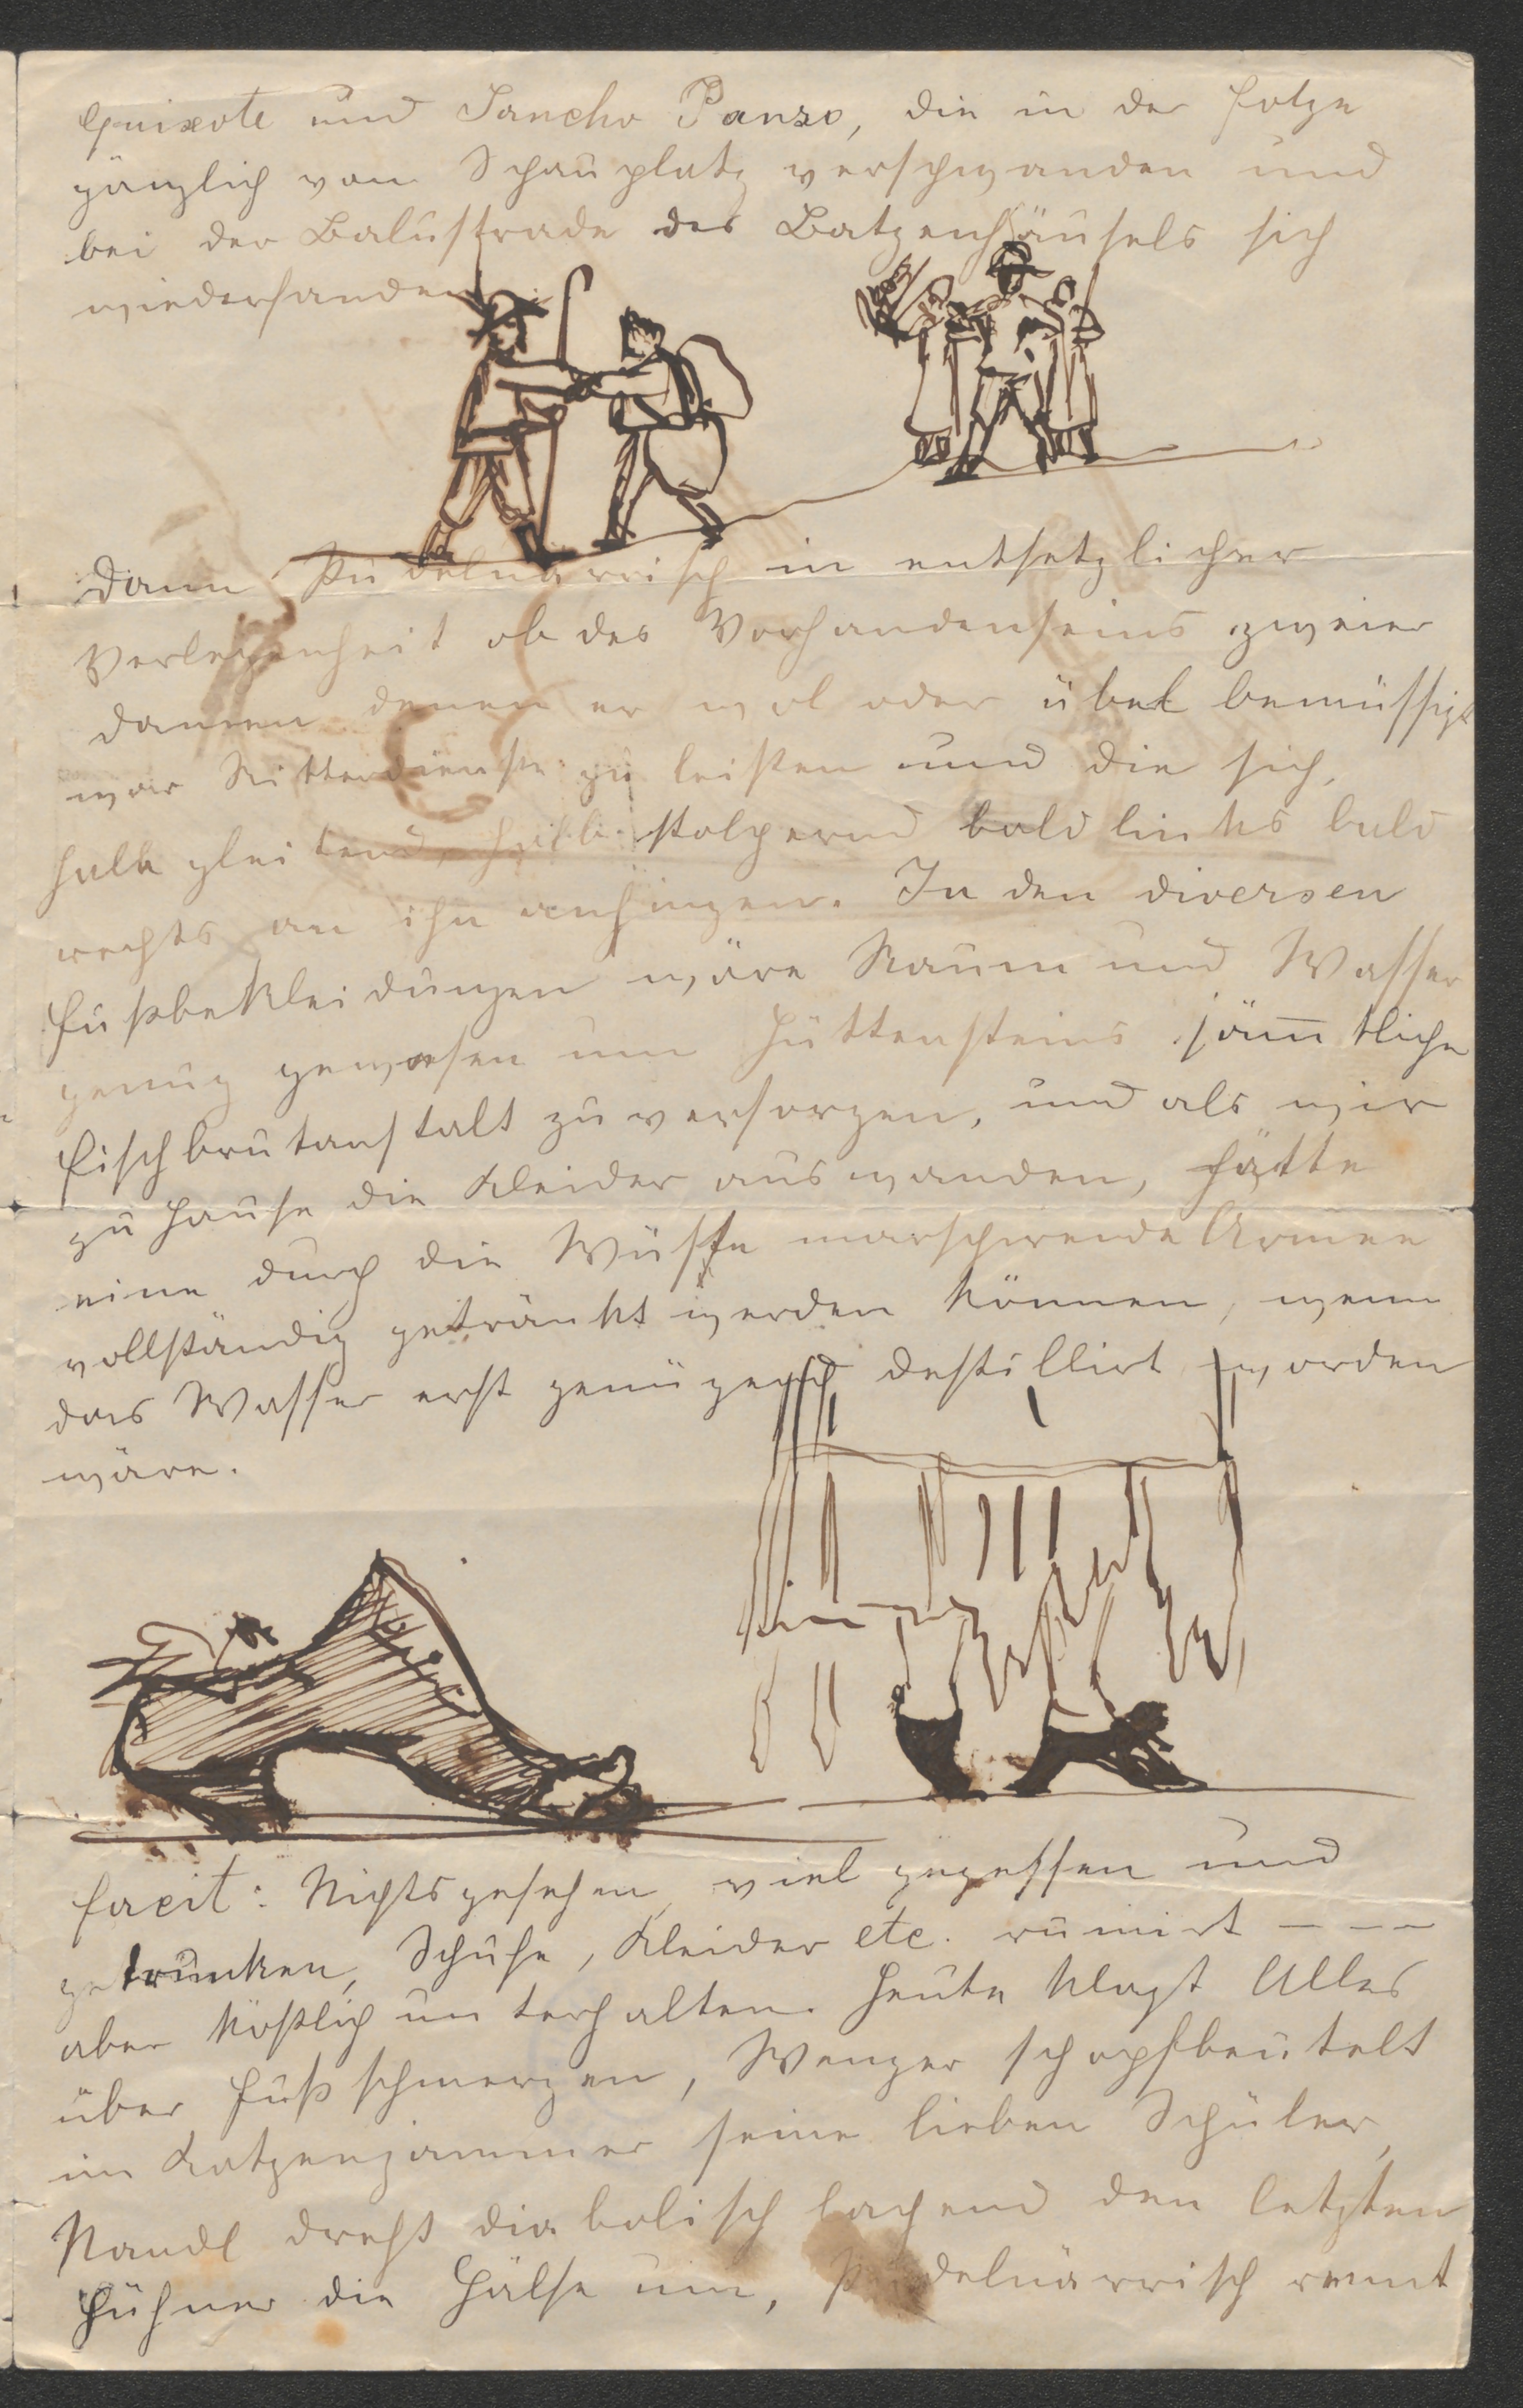 Quixote und Sancho Panso, die in der Folge
gänzlich vom Schauplatz verschwanden und
bei der Balustrade des Batzenhäusels sich
wiederfanden
dann Pudelnärrisch in entsetzlicher
Verlegenheit ob des Vorhandenseins zweier
Damen denen er wol oder übel bemüssigt
war Ritterdienste zu leisten und die sich,
halb gleitend, halb stolpernd bald links bald
rechts an ihn anhingen. In den diversen
Fußbekleidungen wäre Raum und Wasser
genug gewesen um Hüttensteins säm̅tliche
Fischbrutanstalt zu versorgen, und als wir
zu Hause die Kleider auswanden, hätte
eine durch die Wüste marschirende Armee
vollständig getränkt werden können, wenn
das Wasser erst genügend destillirt worden
wäre.
Facit: Nichts gesehen, viel gegessen und
getrunken, Schuhe, Kleider etc. ruinirt – – –
aber köstlich unterhalten. Heute klagt Alles
über Fußschmerzen, Wenger schopfbeutelt
im Katzenjammer seine lieben Schüler,
Nandl dreht diabolisch lachend den letzten
Hühner die Hälse um, Pudelnärrisch rennt